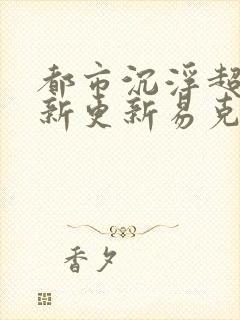 都市沉浮超
新更新易克
香夕